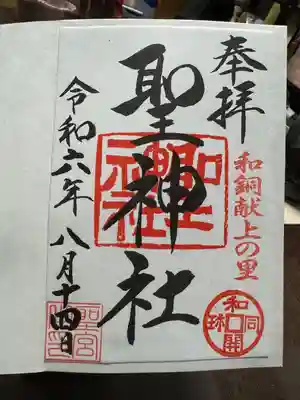 奉拝
和銅献上の里
和同開珎
聖神社
聖神社
令和六年八月十四日